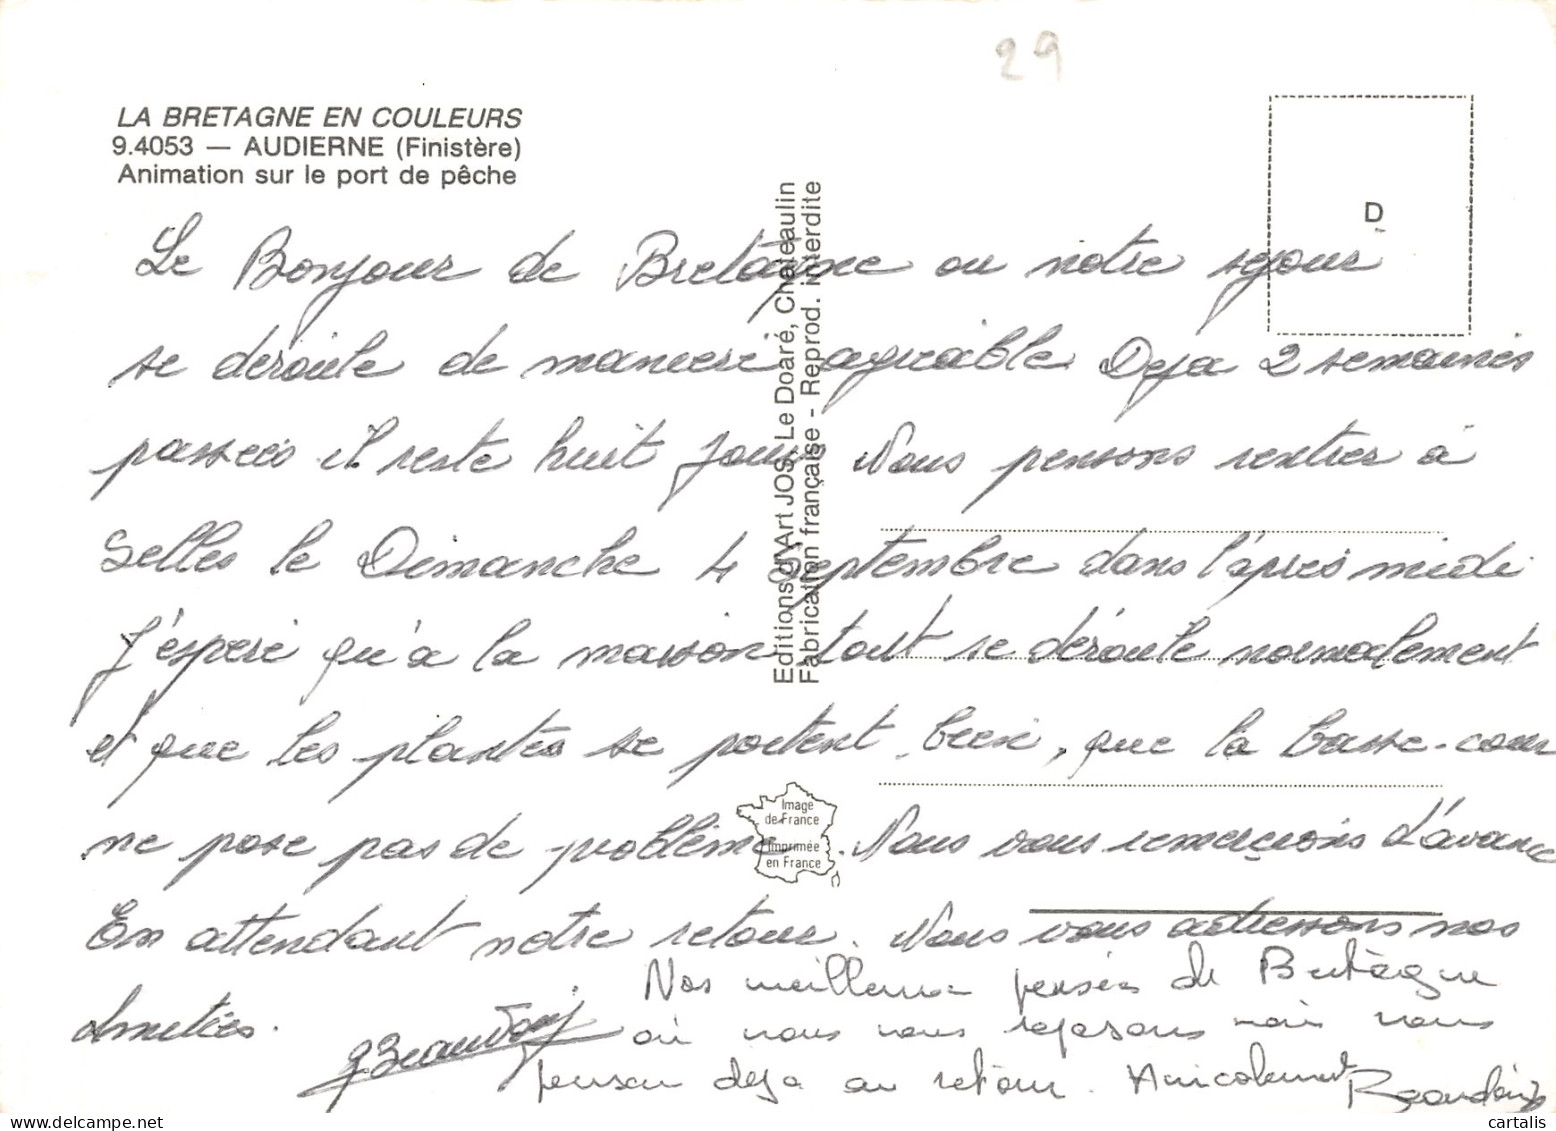 29
LA BRETAGNE EN COULEURS
9.4053 — AUDIERNE (Finistère)
Animation sur le port de pêche
D
Editions d'Art JOS, Le Doaré, Chateaulin
Fabrication française - Reprod. interdite
Le Bonjour de Bretagne ou notre sejour
se déroule de maniere agréable Deja 2 semaines
passées il reste huit jours Nous pensons rentrer à
Selles le Dimanche 4 Septembre dans l'après midi
J'espere qu'à la maison, tout se déroule normalement
et que les plantes se portent bien, que la basse-cour
ne pose pas de problème. Nous vous remerçions d'avance
En attendant notre retour. Nous vous adressons nos
Amitiés.
Image
de France
Imprimée
en France
Nos meilleures pensées de Bretagne
où nous nous reposons mais nous
penson deja au retour. Amicalement